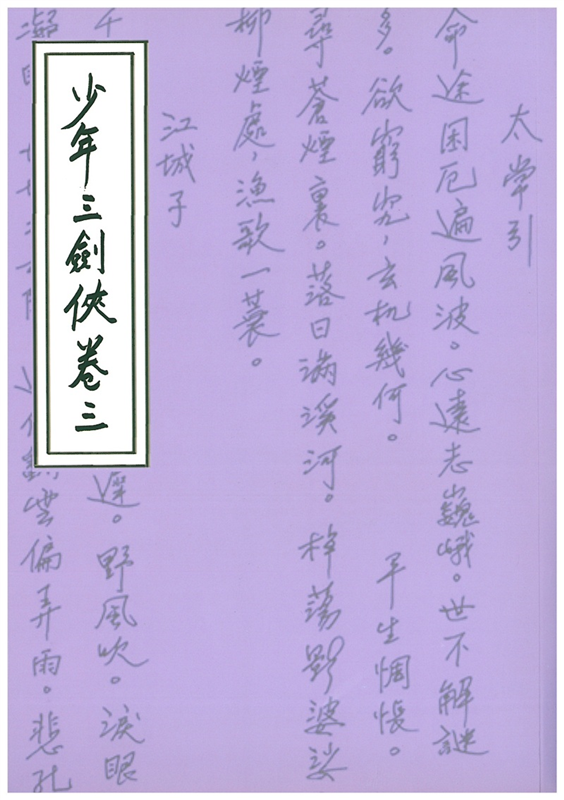 少年三劍俠卷三
太常引
命途困厄遍風波。心遠志巍峨。世不解謎
多。欲窮究，玄机幾何。 平生惆悵。
尋蒼煙裏。落日滿溪河。棹蕩影婆娑
柳煙處，漁歌一蓑。
江城子
遲。野風吹。淚眼
雲偏弄雨。悲孔